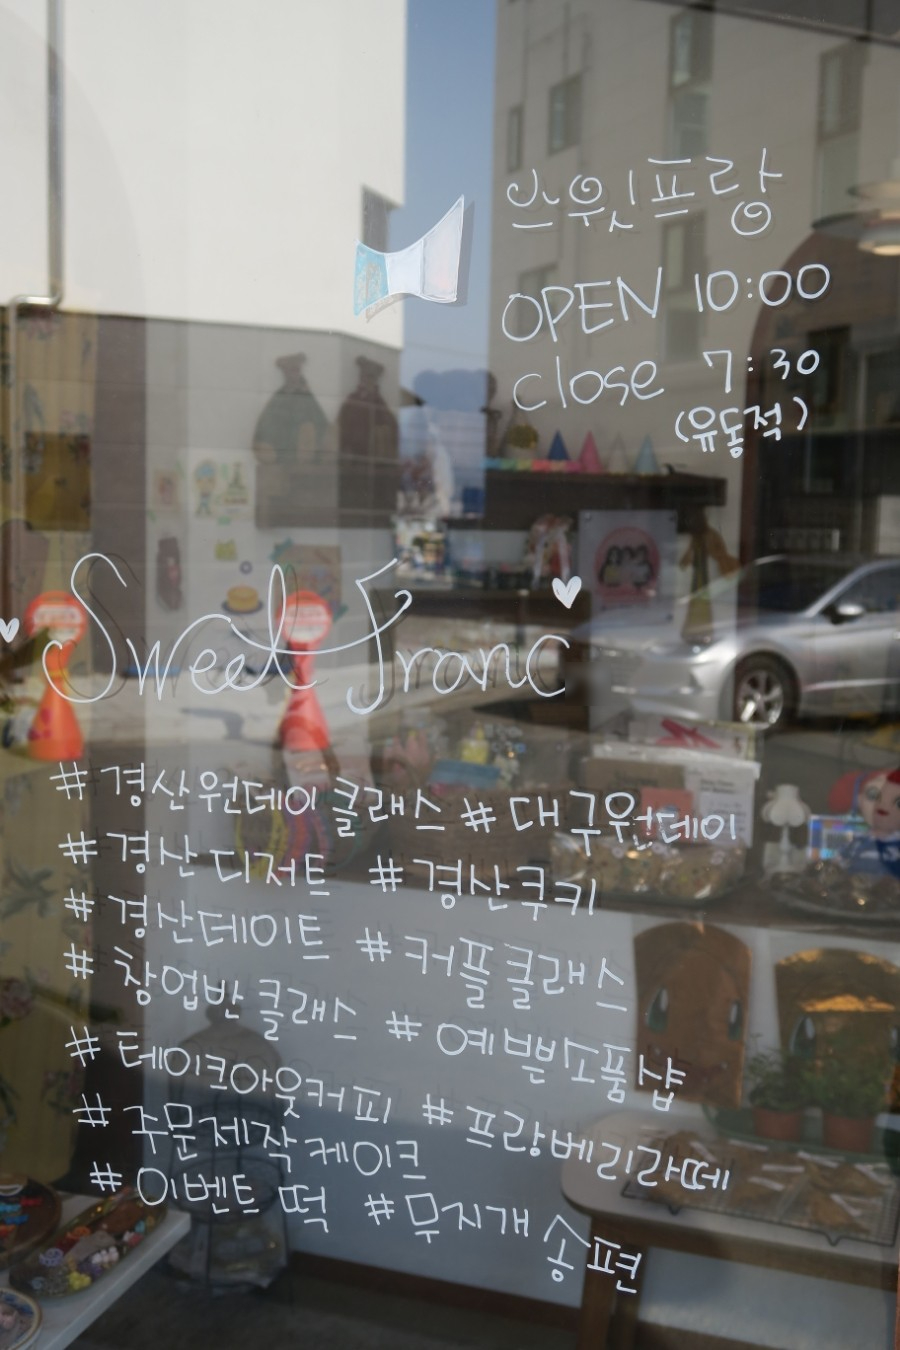 스윗프랑
OPEN 10:00
close 7:30
(유동적)
Sweet Franc
#경산원데이클래스 #대구원데이
#경산디저트 #경산쿠키
#경산데이트 #커플클래스
#창업반클래스 #예쁜소품샵
#테이크아웃커피 #프랑베리라떼
#주문제작케이크
#이벤트떡 #무지개송편